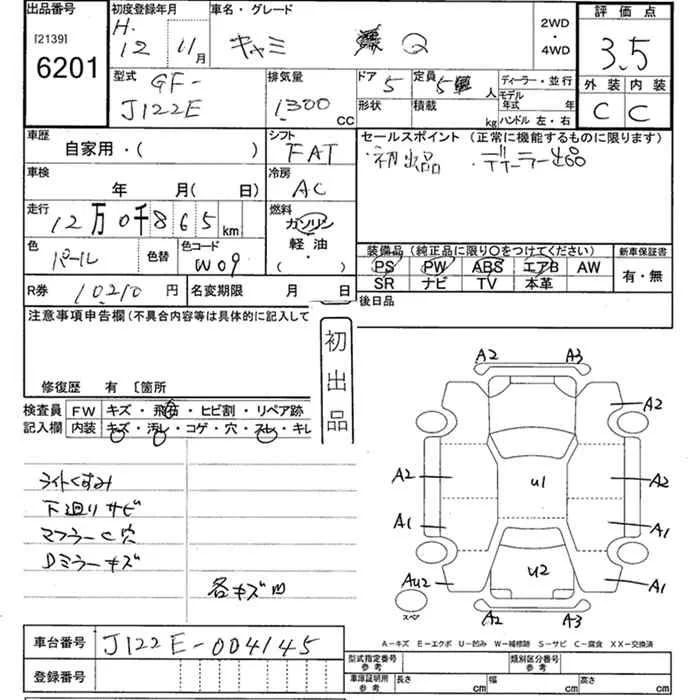 出品番号
[2139]
6201
初度登録年月
H.
12 11月
車名・グレード
キャミ Q
2WD
・
4WD
評価点
3.5
外装 内装
C C
型式 GF-
J122E
排気量
1300
CC
ドア 5
形状
定員 5 人
積載 kg
ディーラー・並行
モデル
年式 年
ハンドル 左・右
車歴
自家用・( )
シフト
FAT
セールスポイント (正常に機能するものに限ります)
・初出品 ・ディーラー出品
車検
年 月( 日)
冷房
AC
走行
12万0千865km
燃料
ガソリン
軽油・
( )
色
パール
色替
色コード
W09
装備品 (純正品に限り〇をつけてください)
PS PW ABS エアB AW
SR ナビ TV 本革
新車保証書
有・無
R券 10,210 円
名変期限 月 日
後日品
注意事項申告欄 (不具合内容等は具体的に記入して
修復歴 有 〔箇所
初出品
検査員
記入欄
FW キズ・飛石・ヒビ割・リペア跡
内装 キズ・汚レ・コゲ・穴・スレ・キレ
ライトくすみ
下廻りサビ
マフラーC穴
Dミラーキズ
各キズ凹
A2 A3
A2
A2 U1 A2
A1 A1
AU2 U2 A1
スペア
A2 A3
A-キズ E-エクボ U-凹み W-補修跡 S-サビ C-腐食 XX-交換済
車台番号 J122E-004145
登録番号
型式指定番号
参考
類別区分番号
参考
車庫証明用
参考
長さ cm
幅 cm
高さ cm